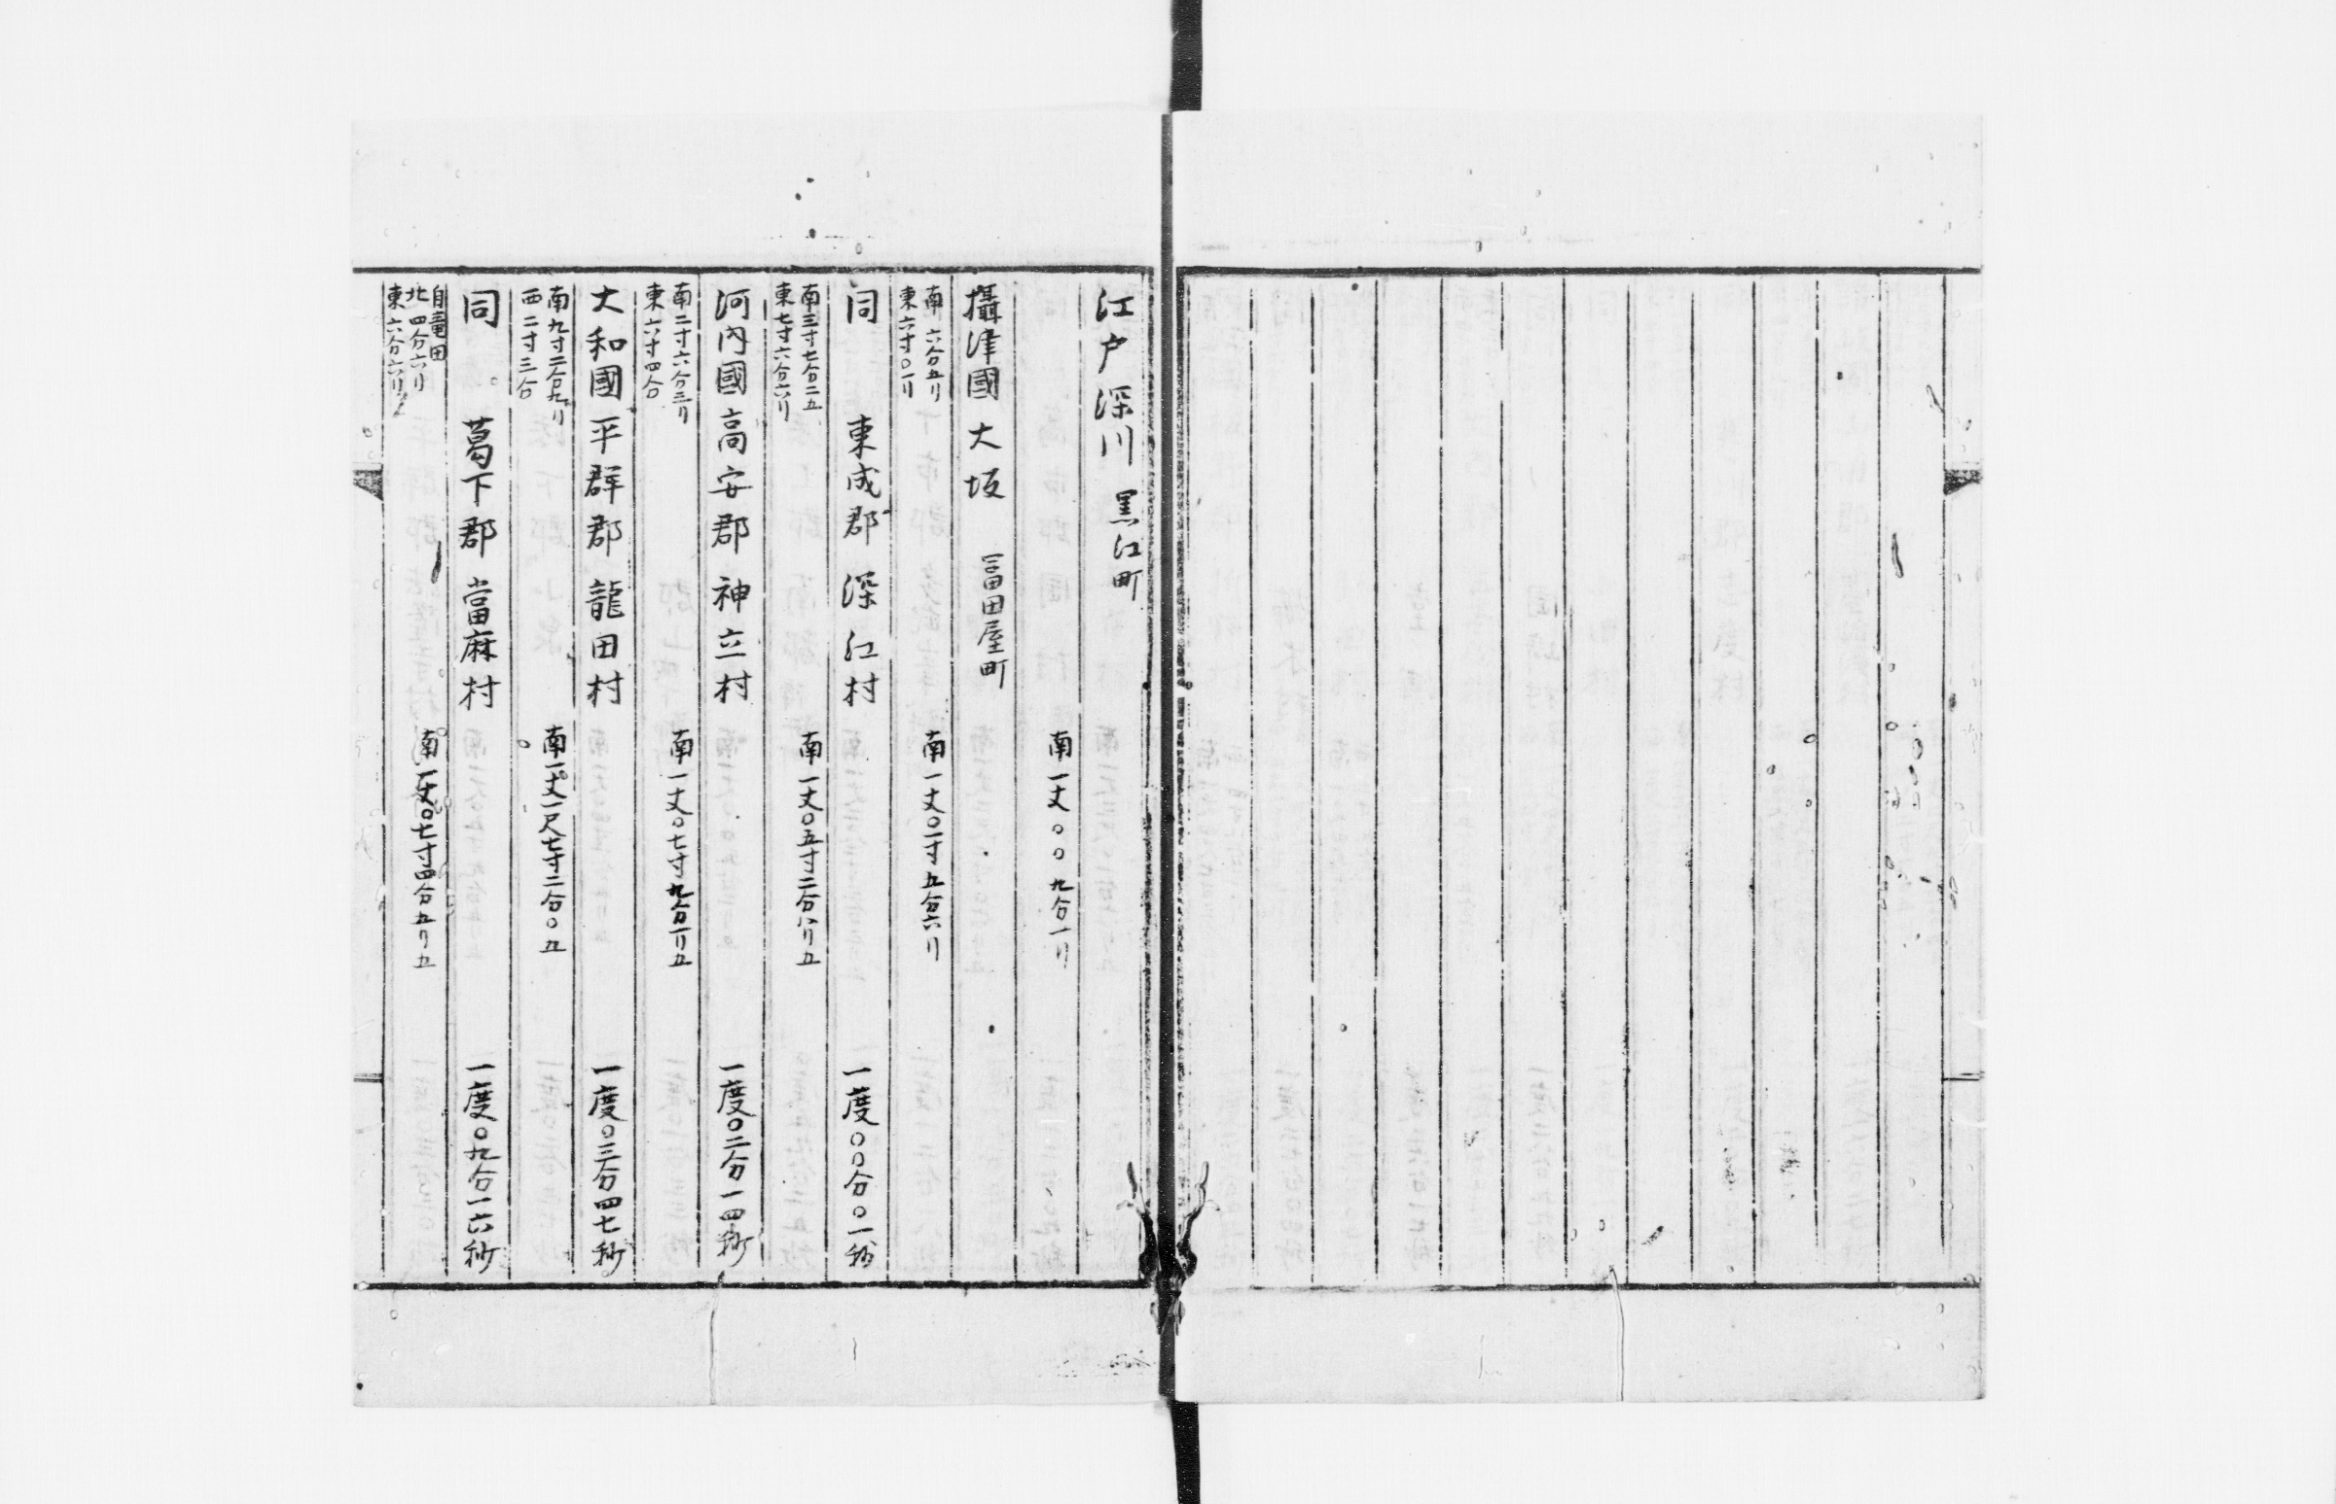 江戸深川 黒江町
南一丈〇〇九分一リ
攝津國大坂 冨田屋町
南 六分五リ
東六寸〇一リ
南一丈〇一寸五分六リ
同 東成郡 深江村 一度〇〇分〇一秒
南三寸七分二五
東七寸六分六リ
南一丈〇五寸二分八リ五
河内國高安郡 神立村 一度〇二分一四秒
南二寸六分三リ
東六寸四分
南一丈〇七寸九分一リ五
大和國平群郡 龍田村 一度〇三分四七秒
南九寸二分九リ
西二寸三分
南一丈一尺七寸二分〇五
同 葛下郡 當麻村 一度〇九分一六秒
自竜田
北四分六リ
東六分六リ
南一丈〇七寸四分五リ五